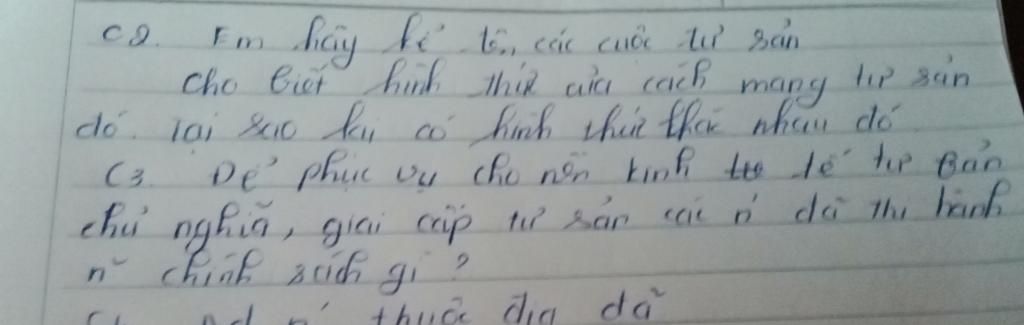 C2. Em hãy kể tên các cuộc tư sản
Cho biết hình thức của cách mạng tư sản
đó. Tại sao lại có hình thức khác nhau đó
C3. Để phục vụ cho nền kinh tế tư bản
chủ nghĩa, giai cấp tư sản các n' đã thi hành
n~ chính sách gì?
thuộc địa đã